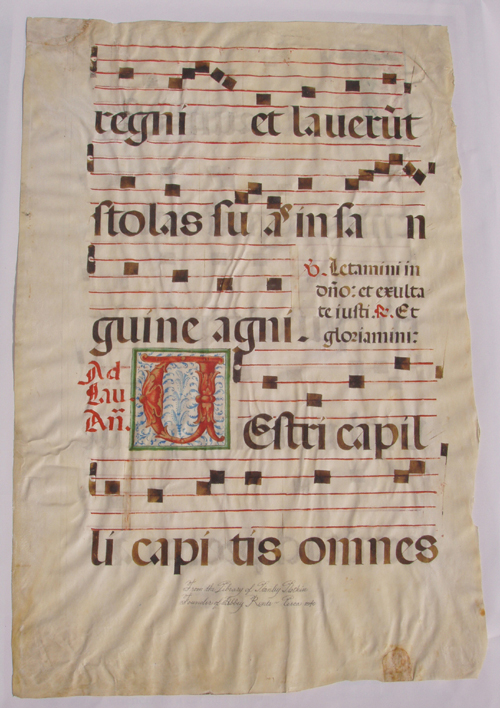 regni et lauerūt
stolas su as in sa n
guine agni.
℣. Letamini in
dño: et exulta
te iusti. ℟. Et
gloriamini:
Ad
Lau
Añ.
UEstri capil
li capi tis omnes
From the Library of Stanley
Founder of Abbey